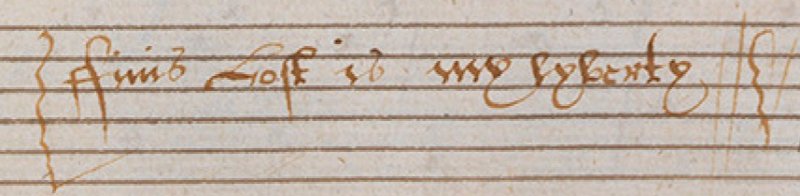 ffinis Lost is my lyberty